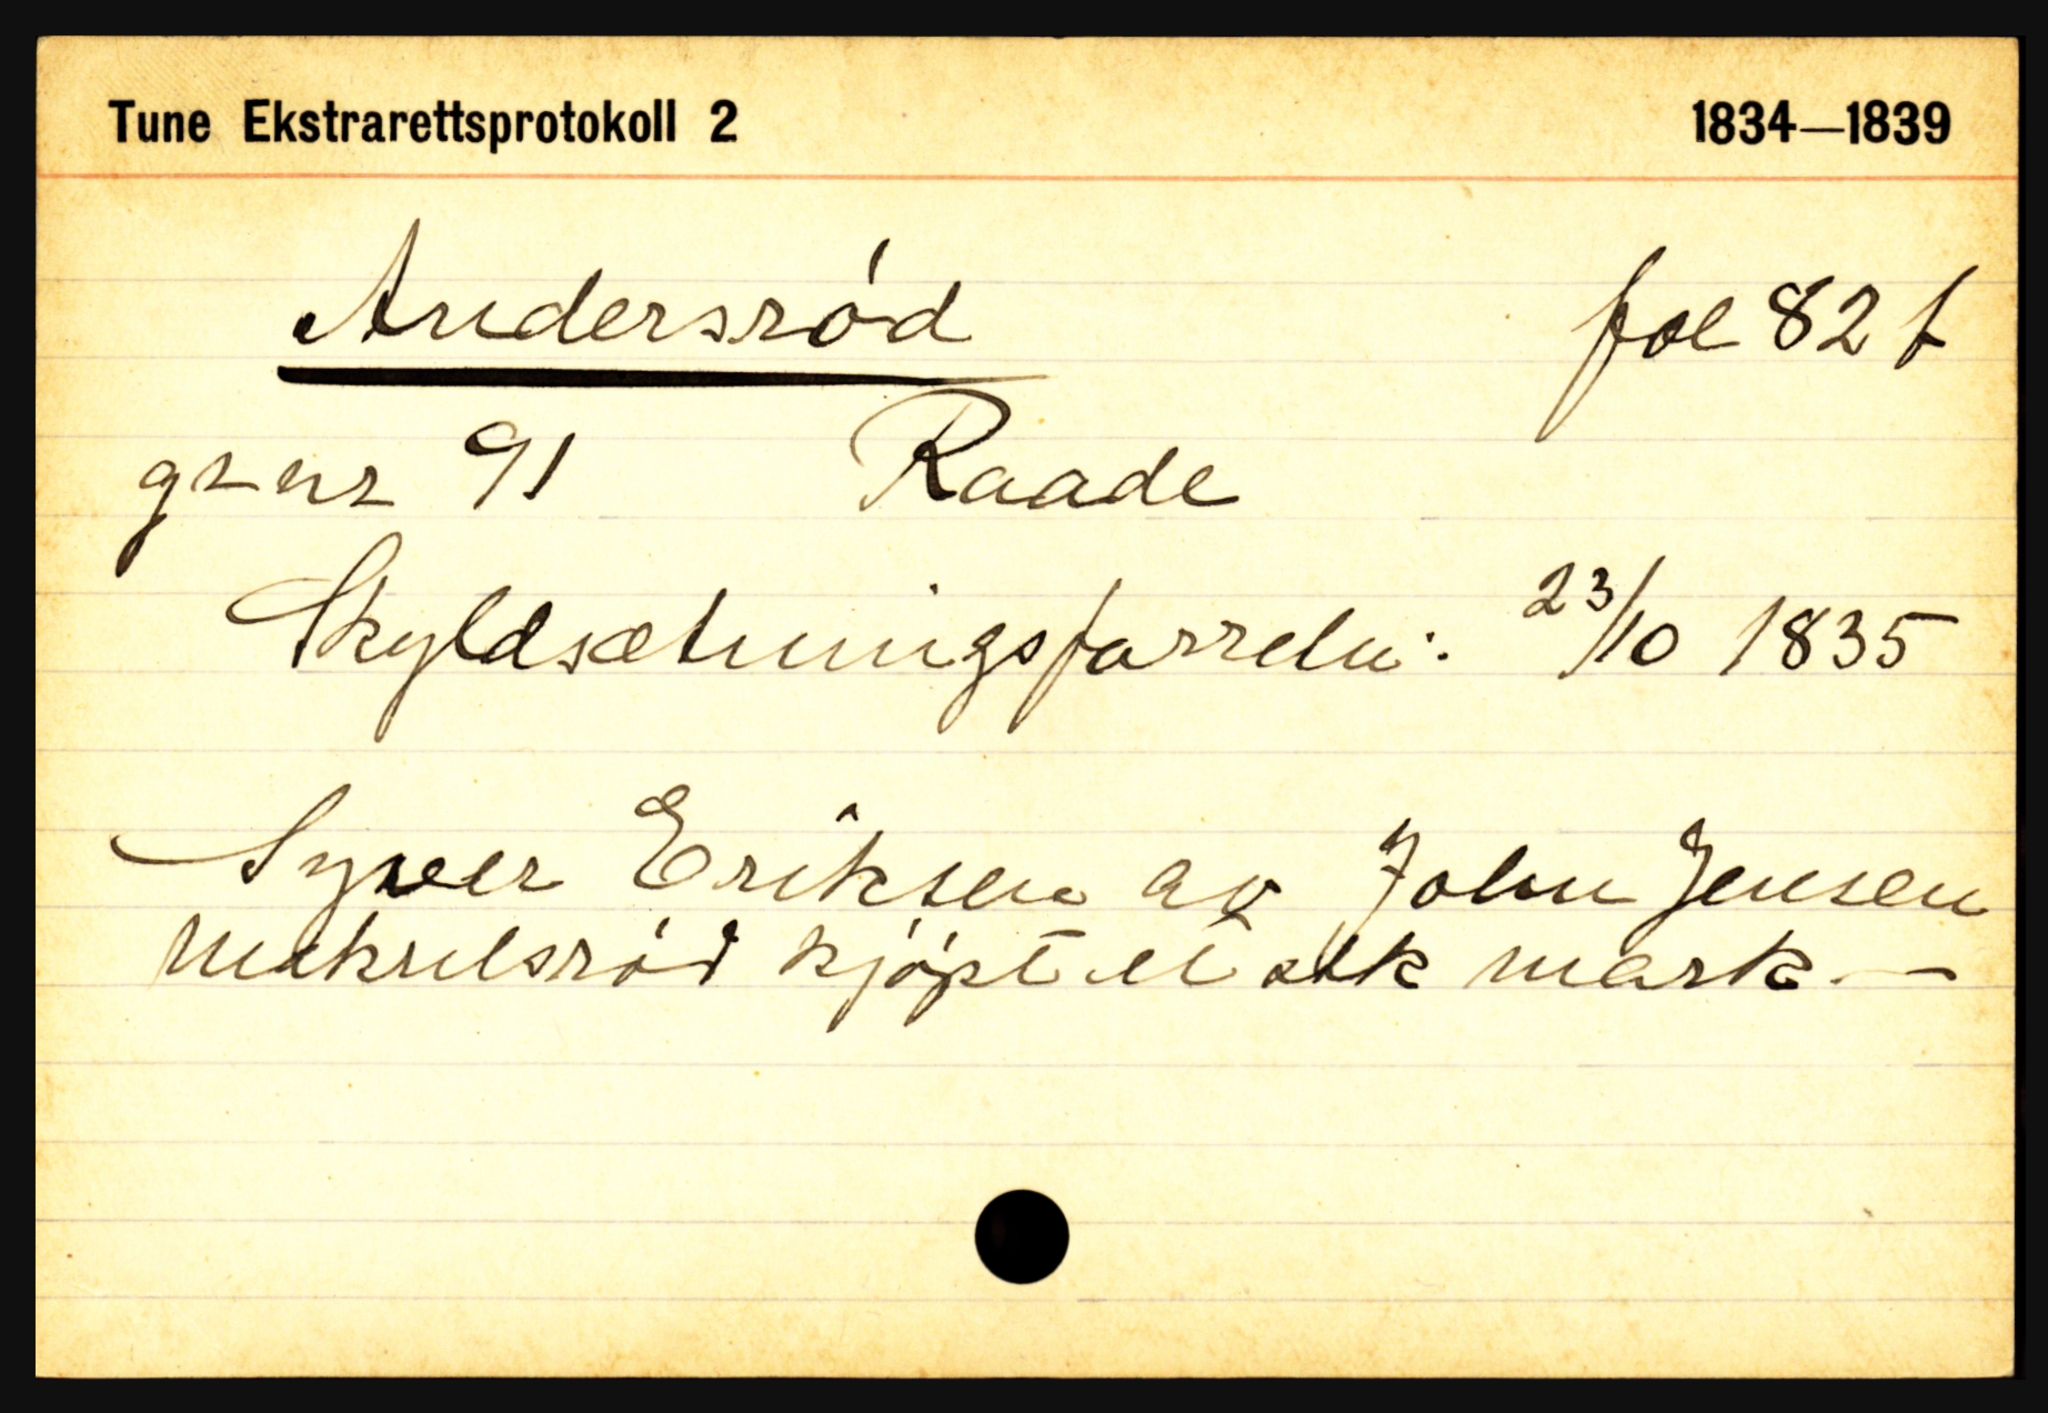 Tune Ekstrarettsprotokoll 2 1834—1839
Andersród fol 82 b
gr nr 91 Raade
Skyldsætningsforretn: 23/10 1835
Syver Eriksen av John Jensen
kjópt et stk mark. —